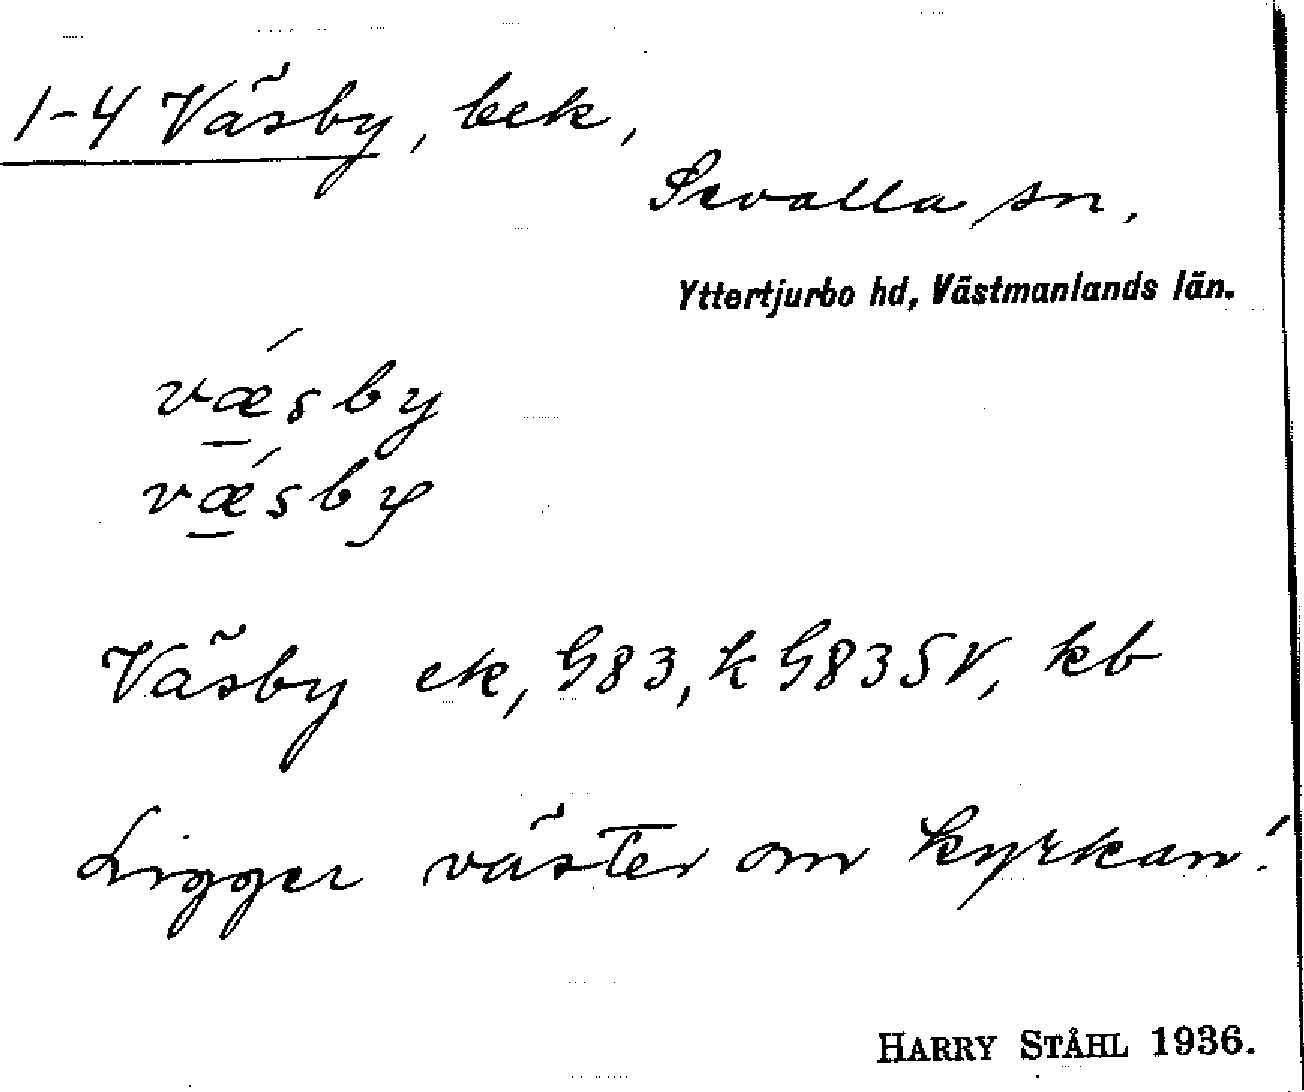 1-4 Väsby, bek,
Sevalla sn.
Yttertjurbo hd, Västmanlands län.
vǽ̲sby
vǽ̲sby
Väsby ek, G83, k G83SV, kb
Ligger väster om kyrkan!
HARRY STÅHL 1936.